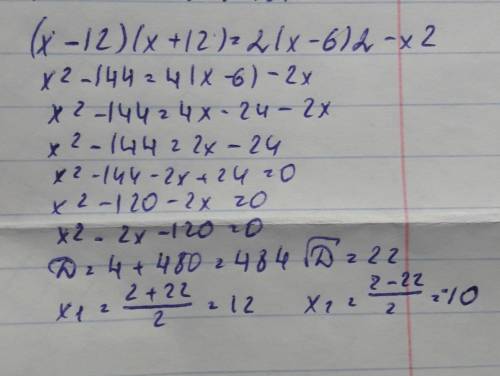 (x - 12)(x + 12) = 2(x - 6)2 - x2
x2 - 144 = 4(x - 6) - 2x
x2 - 144 = 4x - 24 - 2x
x2 - 144 = 2x - 24
x2 - 144 - 2x + 24 = 0
x2 - 120 - 2x = 0
x2 - 2x - 120 = 0
D = 4 + 480 = 484 √D = 22
x1 = (2 + 22)/2 = 12 x2 = (2 - 22)/2 = -10